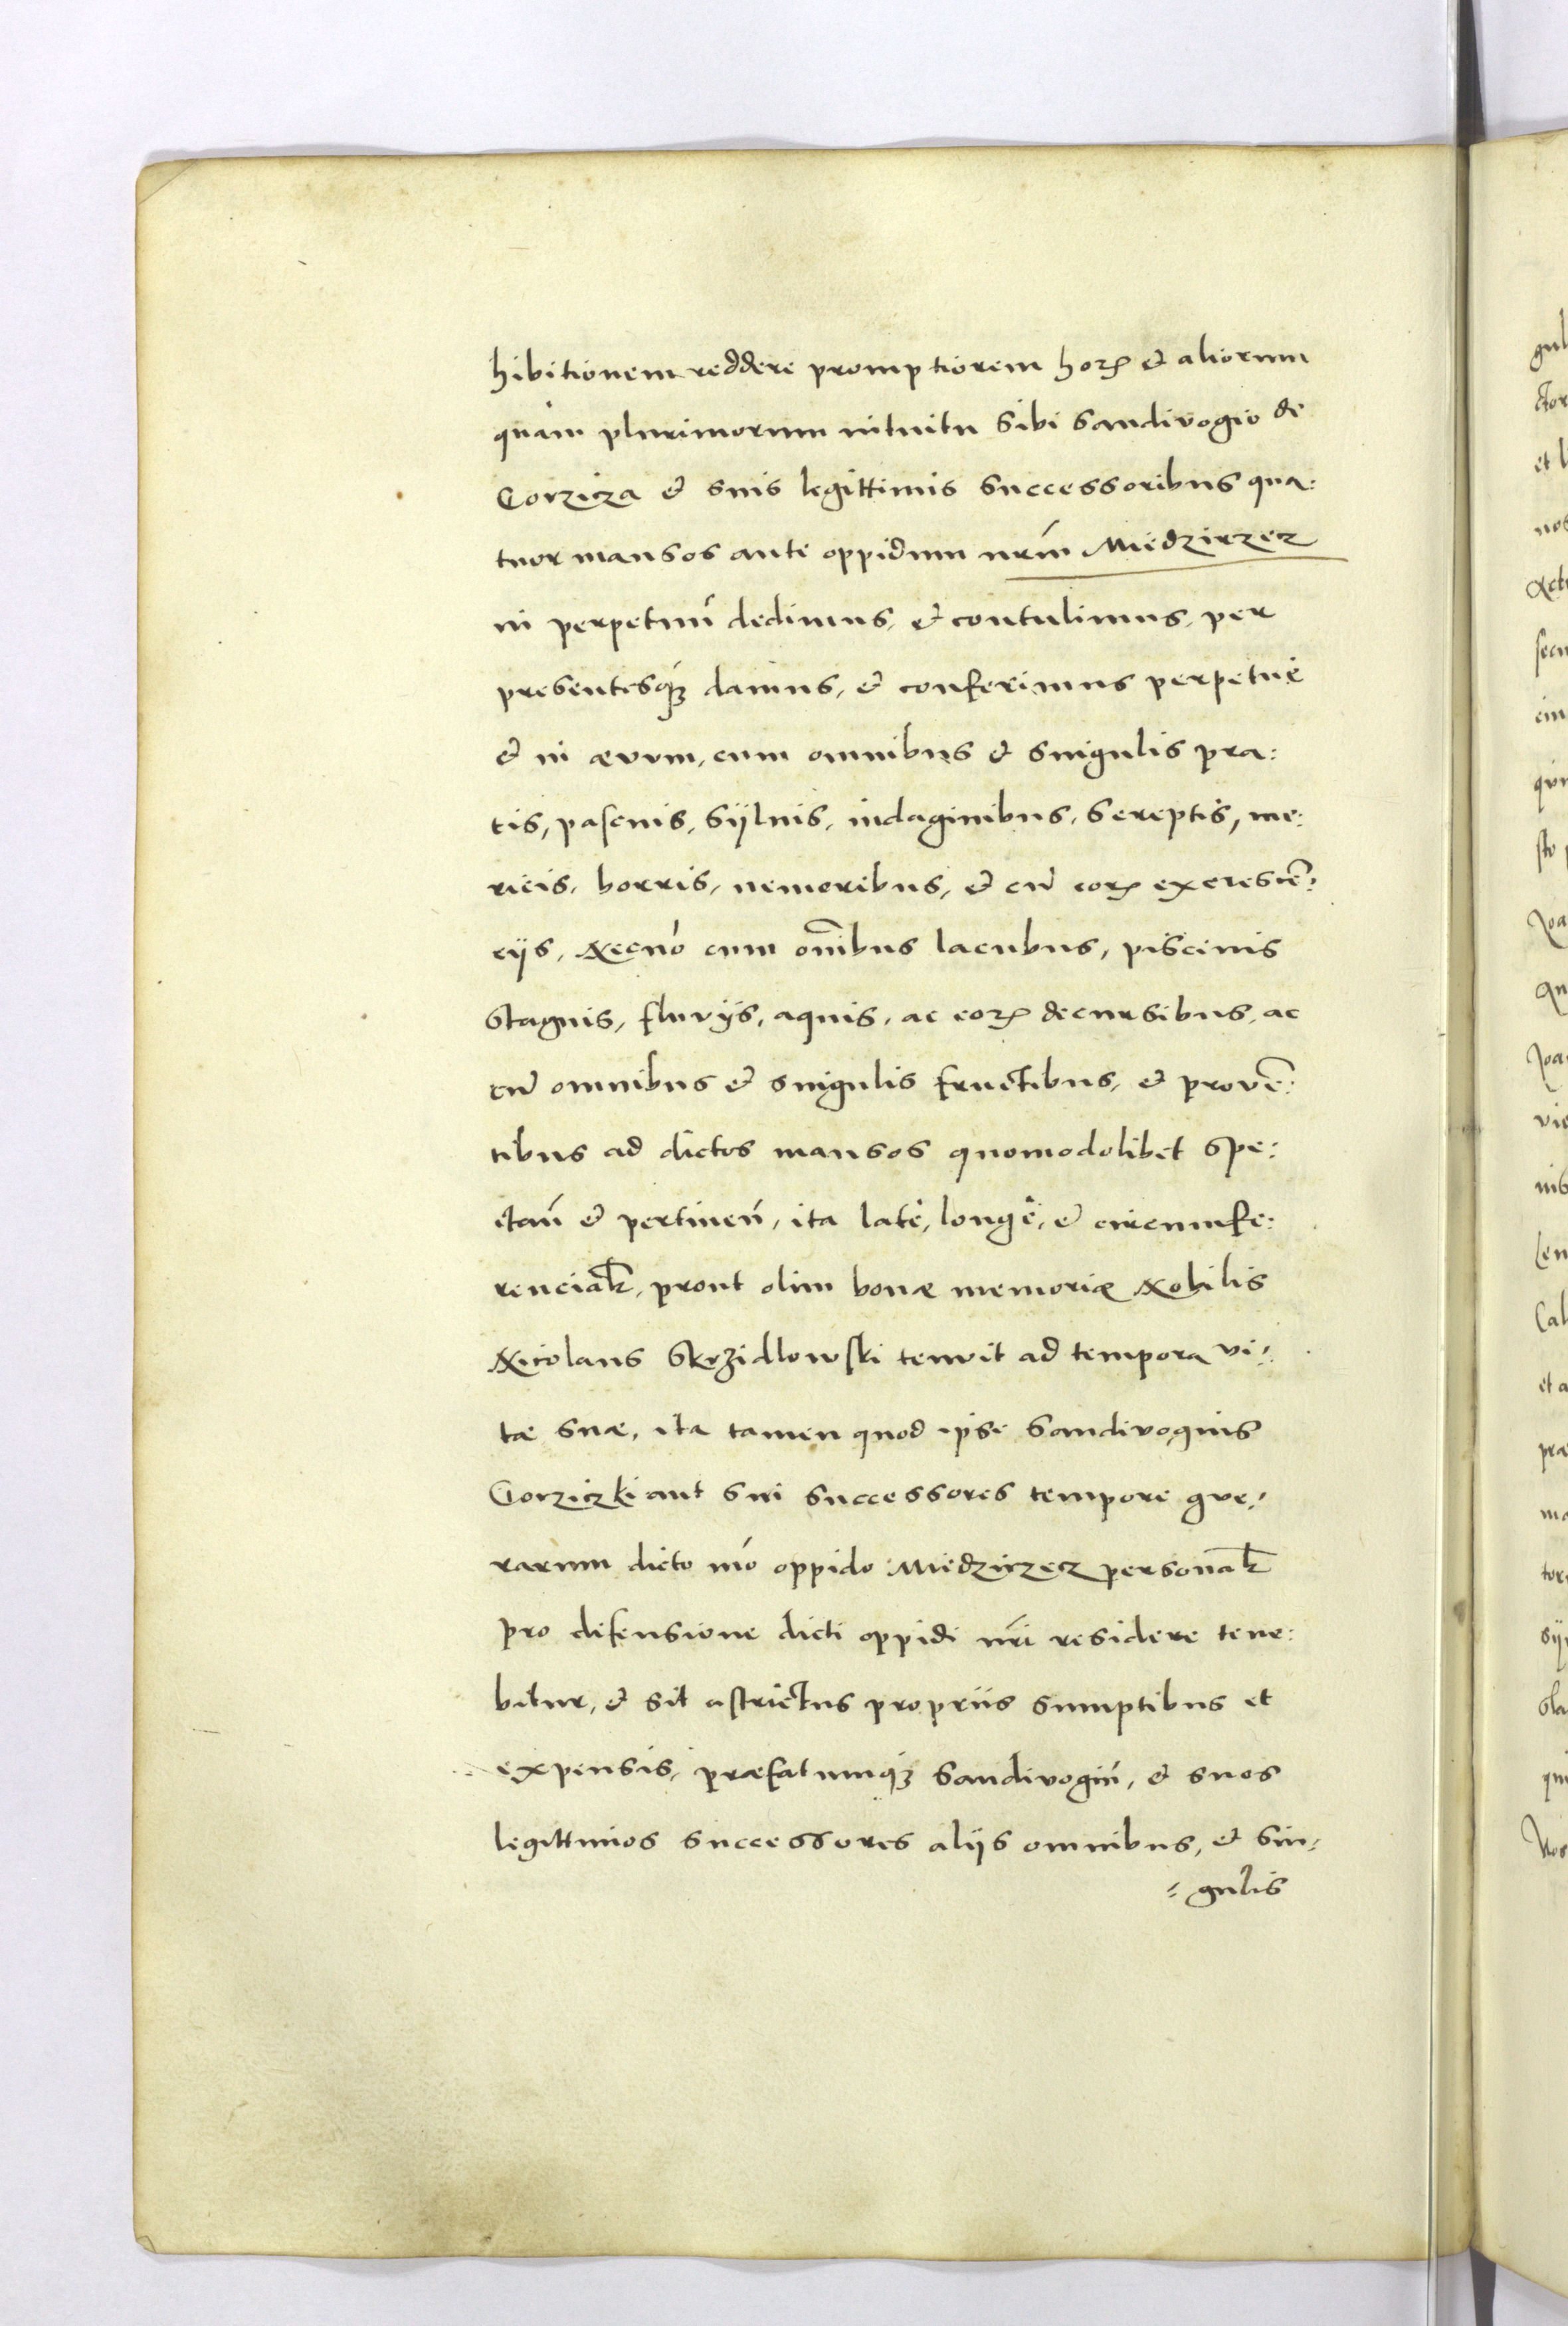 hibitionem reddere promptiorem hoꝝ & aliorum
quàm plurimorum intuitu sibi Sandivogio de
Gorzicza & suis legittimis successoribus qua:
tuor mansos ante oppidum nrḿ Miedzirzecz
in perpetuú dedimus, & contulimus, per
presentesq́ꝫ damus, & conferimus perpetuè
& in ævum, cum omnibus & singulis pra:
tis, pascuis, sÿluis, indaginibus, sereptis, me:
ricis, borris, nemoribus, & cū eoꝝ excrescē:
cijs, Necnó cum om̄ibus lacubus, piscinis
stagnis, fluvÿs, aquis, ac eoꝝ decursibus, ac
cū omnibus & singulis fructibus, & provē:
tibus ad dictos mansos quomodolibet spe:
ctań & pertineń, ita latè, longè, & circumfe:
renciaꝉr, prout olim bonæ memoriæ Nobilis
Nicolaus Skrzidlowski tenuit ad tempora vi:
tæ suæ, ita tamen quod ipse Sandivogius
Gorziczki aut sui successores tempore gue:
rarum dicto nró oppido Miedzirzecz personaꝉr
pro defensione dicti oppidi nrí residere tene:
bitur, & sit astrictus propriis sumptibus et
expensis, præfatumq́ꝫ Sandivogiú, & suos
legittimos successores alijs omnibus, & sin:
:gulis